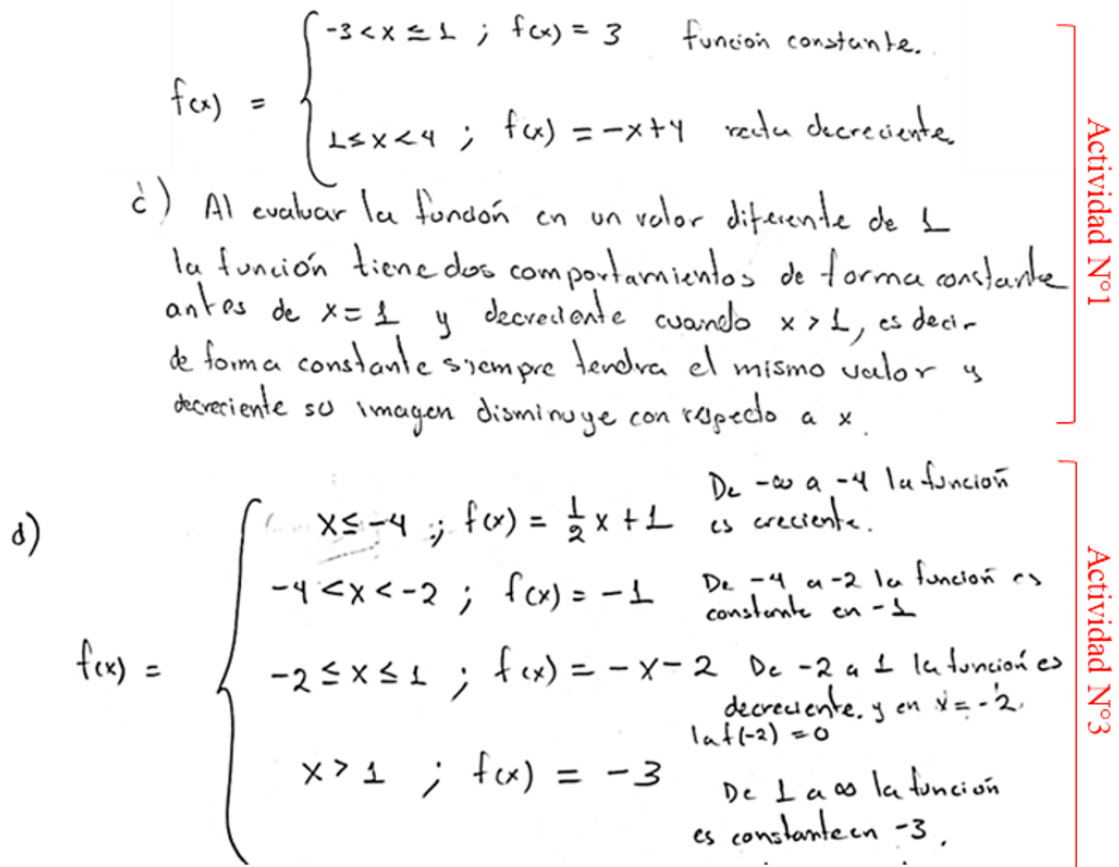 -3 < x ≤ 1 ; f(x) = 3 función constante.
f(x) =
1 ≤ x < 4 ; f(x) = -x+4 recta decreciente.
c) Al evaluar la función en un valor diferente de 1
la función tiene dos comportamientos de forma constante
antes de x = 1 y decreciente cuando x > 1, es decir
de forma constante siempre tendra el mismo valor y
decreciente su imagen disminuye con respecto a x.
Actividad N°1
d)
f(x) =
x ≤ -4 ; f(x) = 1/2 x + 1 De -∞ a -4 la función
es creciente.
-4 < x < -2 ; f(x) = -1 De -4 a -2 la función es
constante en -1
-2 ≤ x ≤ 1 ; f(x) = -x - 2 De -2 a 1 la función es
decreciente. y en x = -2.
la f(-2) = 0
x > 1 ; f(x) = -3 De 1 a ∞ la función
es constante en -3.
Actividad N°3